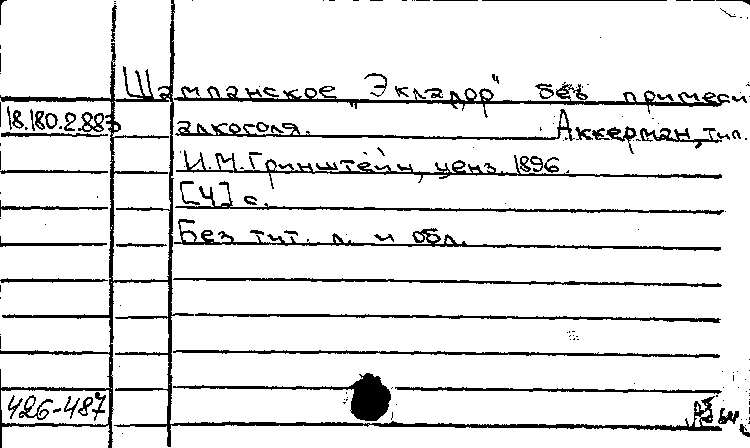 Шампанское „Экладор" без примеси
18.180.2.883 алкоголя. Аккерман, тип.
И.М. Гринштейн, ценз. 1896.
[4] с.
Без тит. л. и обл.
426-487